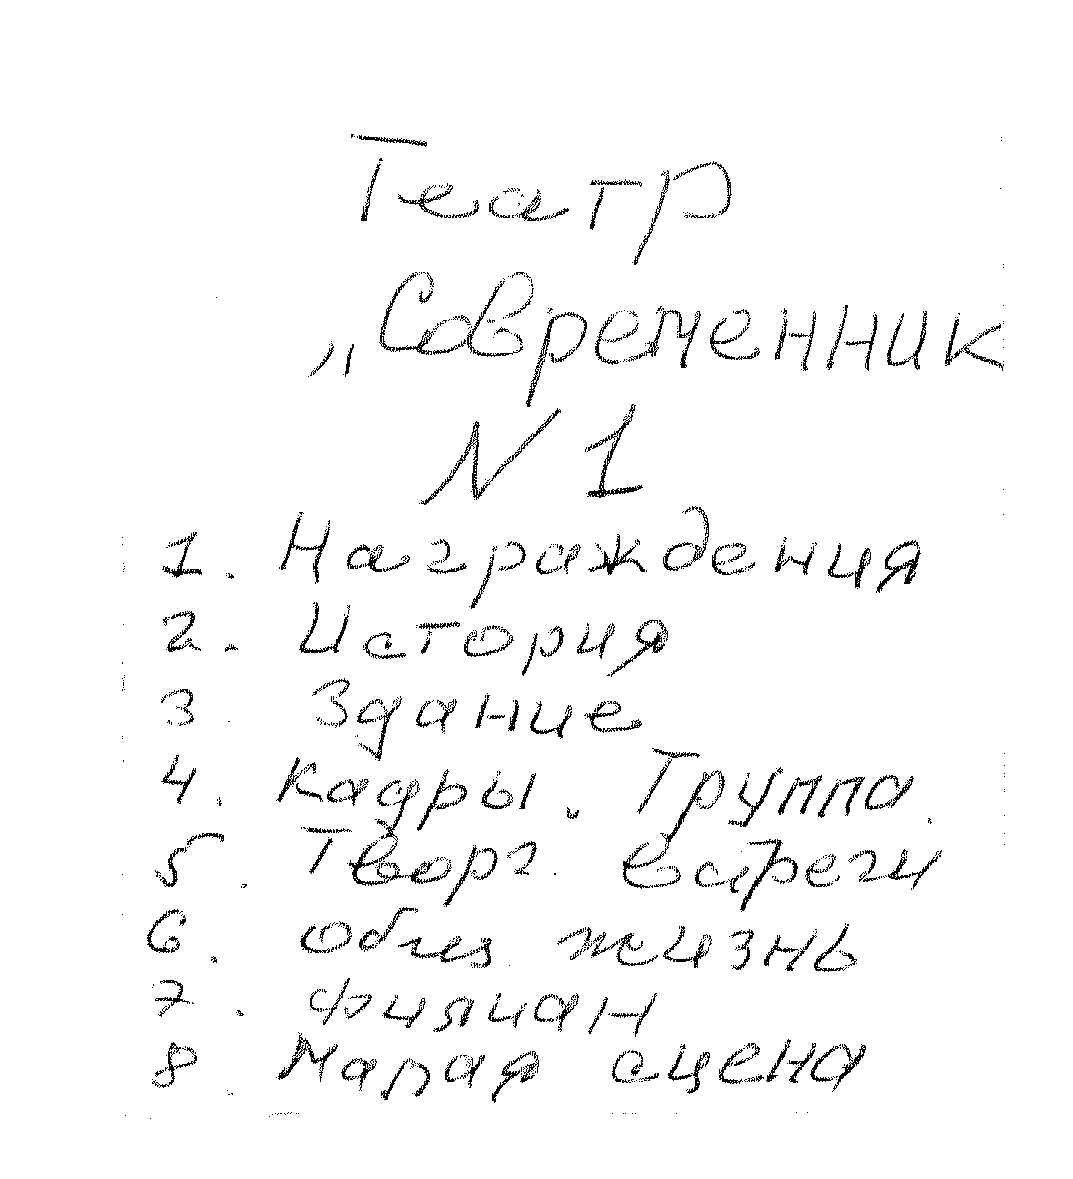 Театр
„Современник
N 1
1. Награждения
2. История
3 Здание
4. Кадры. Труппа
5. Творч. встречи
6. Общ жизнь
7. Филиал
8. Малая сцена